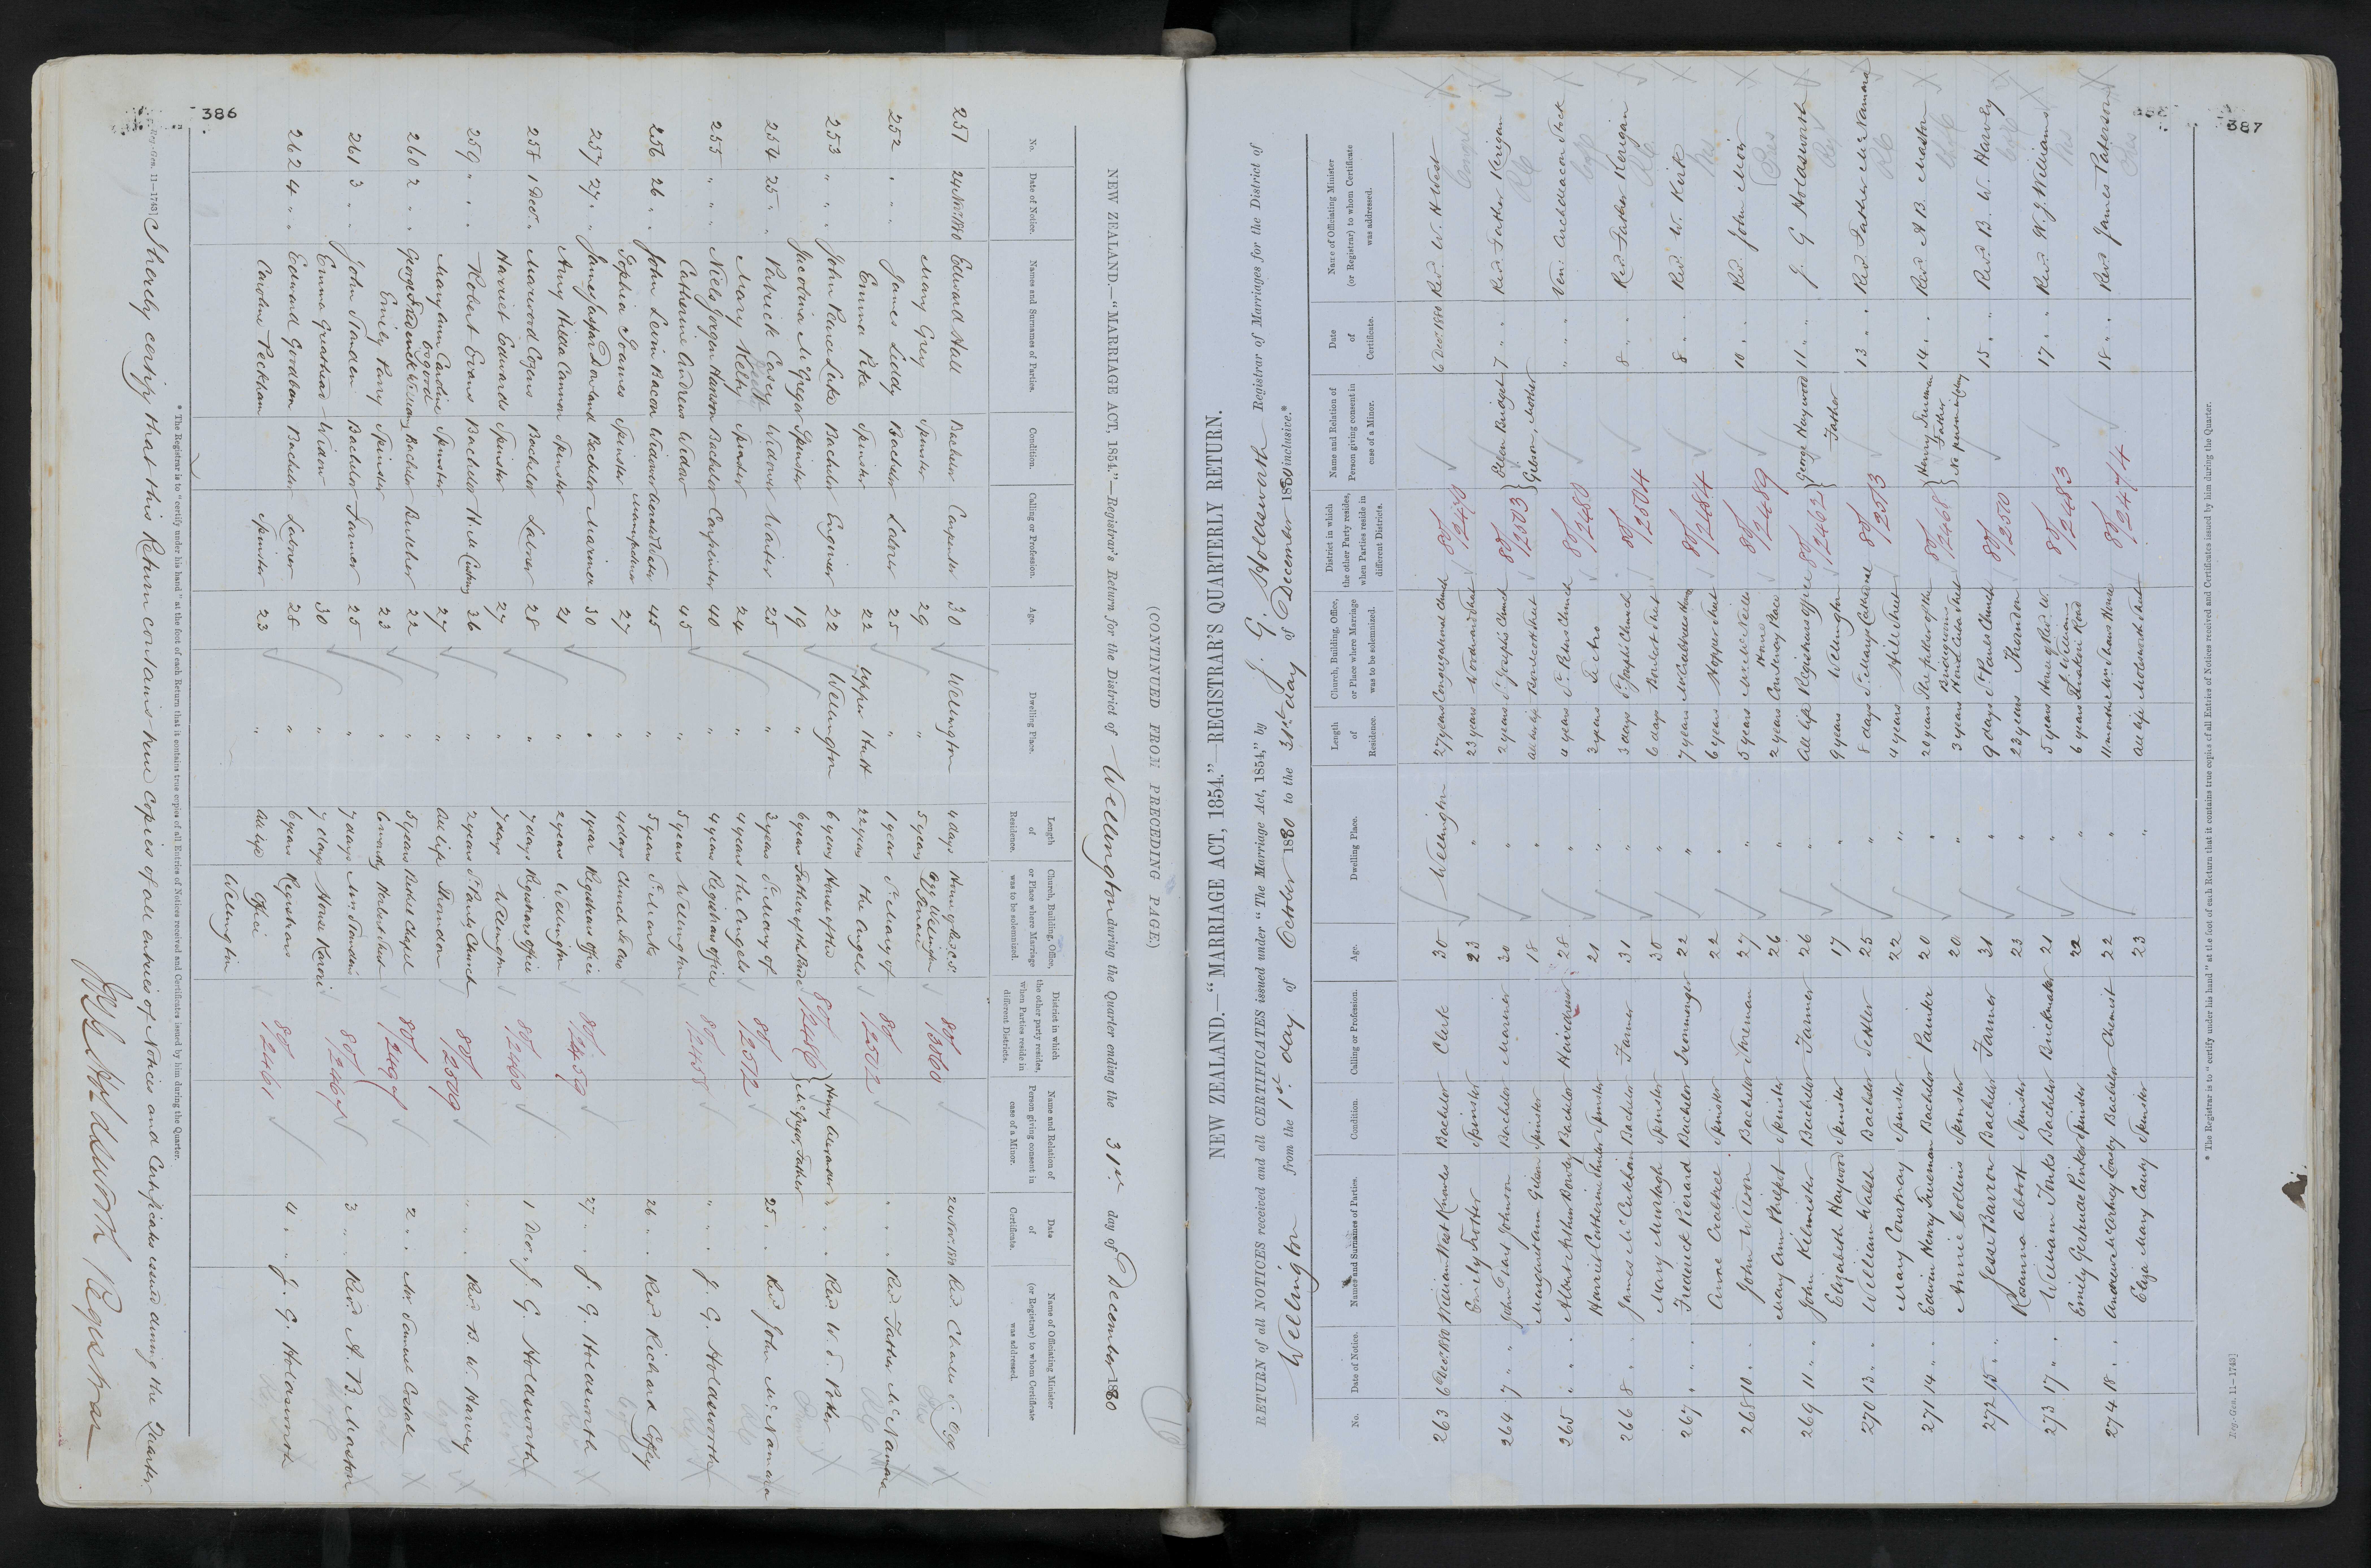 386
(CONTINUED FROM PRECEDING PAGE)
NEW ZEALAND.—"MARRIAGE ACT, 1854."—Registrar's Return for the District of Wellington during the Quarter ending the 31st day of December 1880
No. Date of Notice. Names and Surnames of Parties. Condition. Calling or Profession. Age. Dwelling Place. Length of Residence. Church, Building, Office, or Place where Marriage was to be solemnized. District in which the other party resides, when Parties reside in different Districts. Name and Relation of Person giving consent in case of a Minor. Date of Certificate. Name of Officiating Minister (or Registrar) to whom Certificate was addressed.
251 24 Nov. 1880 Edward Hall Bachelor Carpenter 30 Wellington 4 days House of Rev. C. S. 80/ 24 Nov. 1880 Rev. Charles S. Ogg
Mary Grey Spinster 29 " 5 years Ogg Wellington Terrace
252 " " James Liddy Bachelor Laborer 25 " 1 year St. Mary of 80/2502 " " Rev. Father McNamara
Emma Pike Spinster 22 Upper Hutt 22 years the Angels
253 " " John Pearce Luke Bachelor Engineer 22 Wellington 6 years House of the 80/2456 " " Rev. W. J.
Jacobina McGregor Spinster 19 " 6 years Father of the Bride McGregor Father
254 25 " Patrick Casey Widower Waiter 25 " 3 years St. Mary of 80/2512 25 " Rev. John McNamara
Mary Kelty Spinster 24 " 4 years the Angels
255 " " Niels Jorgen Hanson Bachelor Carpenter 40 " 4 years Registrars office 80/2458 " " J. G. Holdsworth
Catherine Andrews Widow 45 " 5 years Wellington
256 26 " John Levin Bacon Widower 45 " 5 years St. Marks 26 " Rev. Richard Coffey
Sophia Soames Spinster 27 " 4 days Church Te Aro
257 27 " James Gaspar Dowland Bachelor Mariner 30 " 1 year Registrars office 80/2459 27 " J. G. Holdsworth
Amy Hilda Cannon Spinster 21 " 2 years Wellington
258 1 Dec. " Marwood Cogens Bachelor Laborer 28 " 7 days Registrars office 80/2460 1 Dec. J. G. Holdsworth
Harriet Edwards Spinster 27 " 7 days Wellington
259 " " Robert Evans Bachelor H.M. Customs 26 " 2 years St. Pauls Church 80/2509 " " Rev. B. W. Harvey
Mary Ann Caroline Osgood Spinster 27 " All life Thorndon
260 2 " Bachelor Butcher 22 " 5 years Bethel Chapel 80/ 2 " Mr. Samuel Costall
Emily Parry Spinster 23 " 6 months Herbert Street
261 3 " John Standen Bachelor Farmer 25 " 7 days Mr. Standen's 80/2467 3 " Rev. A. B. Marston
Emma Greethead Widow 30 " 7 days House Karori
262 4 " Edward Goodban Bachelor Laborer 28 " 6 years Registrars 80/2461 4 " J. G. Holdsworth
Caroline Peckham Spinster 23 " All life Office Wellington
* The Registrar is to "certify under his hand" at the foot of each Return that it contains true copies of all Entries of Notices received and Certificates issued by him during the Quarter.
Reg.-Gen. 11—1743]
I hereby certify that this Return contains true copies of all entries of Notices and Certificates issued during the Quarter.
J. G. Holdsworth Registrar
387
NEW ZEALAND.—"MARRIAGE ACT, 1854."—REGISTRAR'S QUARTERLY RETURN.
RETURN of all NOTICES received and all CERTIFICATES issued under "The Marriage Act, 1854," by J. G. Holdsworth Registrar of Marriages for the District of
Wellington from the 1st day of October 1880 to the 31st day of December 1880 inclusive.*
No. Date of Notice. Names and Surnames of Parties. Condition. Calling or Profession. Age. Dwelling Place. Length of Residence. Church, Building, Office, or Place where Marriage was to be solemnized. District in which the other Party resides, when Parties reside in different Districts. Name and Relation of Person giving consent in case of a Minor. Date of Certificate. Name of Officiating Minister (or Registrar) to whom Certificate was addressed.
263 6 Dec. 1880 William West Knowles Bachelor Clerk 30 Wellington 27 years Congregational Church 80/2470 6 Dec. 1880 Rev. W. H. West
Emily Trotter Spinster 23 " 23 years Woodward Street
264 7 " " John Johnson Bachelor Mariner 30 " 2 years St. Josephs Church 80/2503 Ellen Bridget Gibson, Mother 7 " " Rev. Father Kerigan
Margaret Ann Gibson Spinster 18 " All life Boulcott Street
265 " " Albert Arthur Bowley Bachelor Hairdresser 28 " 4 years St. Peters Church 80/2480 " " Ven. Archdeacon Stock
Harriet Catherine Spinster 21 " 3 years Te Aro
266 8 " James McCutchan Bachelor Farmer 31 " 3 days St. Josephs Church 80/2504 8 " Rev. Father Kerigan
Mary Murtagh Spinster 30 " 6 days Boulcott Street
267 " " Frederick Pierard Bachelor Ironmonger 22 " 7 years 80/2484 8 " Rev. W. Kirk
Annie Crabtree Spinster 22 " 6 years Hopper Street
268 10 " John Wilson Bachelor Storeman 27 " 5 years House 80/2489 10 " Rev. John Moir
Mary Ann Philpot Spinster 26 " 2 years Courtenay Place
269 11 " John Kilmister Bachelor Farmer 26 " All life Registrars office 80/2462 George Haywood Father 11 " J. G. Holdsworth
Elizabeth Haywood Spinster 17 " 9 years Wellington
270 13 " William Walsh Bachelor Settler 25 " 8 days St. Marys Cathedral 80/2513 13 " Rev. Father McNamara
Mary Courtnay Spinster 22 " 4 years Hill Street
271 14 " Edwin Henry Freeman Bachelor Painter 20 " 20 years The Father of the 80/2468 Henry Freeman Father 14 " Rev. A. B. Marston
Annie Collins Spinster 20 " 3 years Bridegrooms House Cuba Street No person in Colony
272 15 " Jesse Barrow Bachelor Farmer 31 " 9 days St. Pauls Church 80/2510 15 " Rev. B. W. Harvey
Rosanna Abbott Spinster 23 " 23 years Thorndon
273 17 " William Tonks Bachelor Brickmaker 21 " 5 years House of Rev. W. J. Williams 80/2483 17 " Rev. W. J. Williams
Emily Gertrude Pinker Spinster 22 " 6 years Road
274 18 " Bachelor Chemist 22 " 11 months Mr. Shaws House 80/2474 18 " Rev. James Paterson
Eliza Mary Canty Spinster 23 " All life Molesworth Street
* The Registrar is to "certify under his hand" at the foot of each Return that it contains true copies of all Entries of Notices received and Certificates issued by him during the Quarter.
Reg.-Gen. 11—1743]